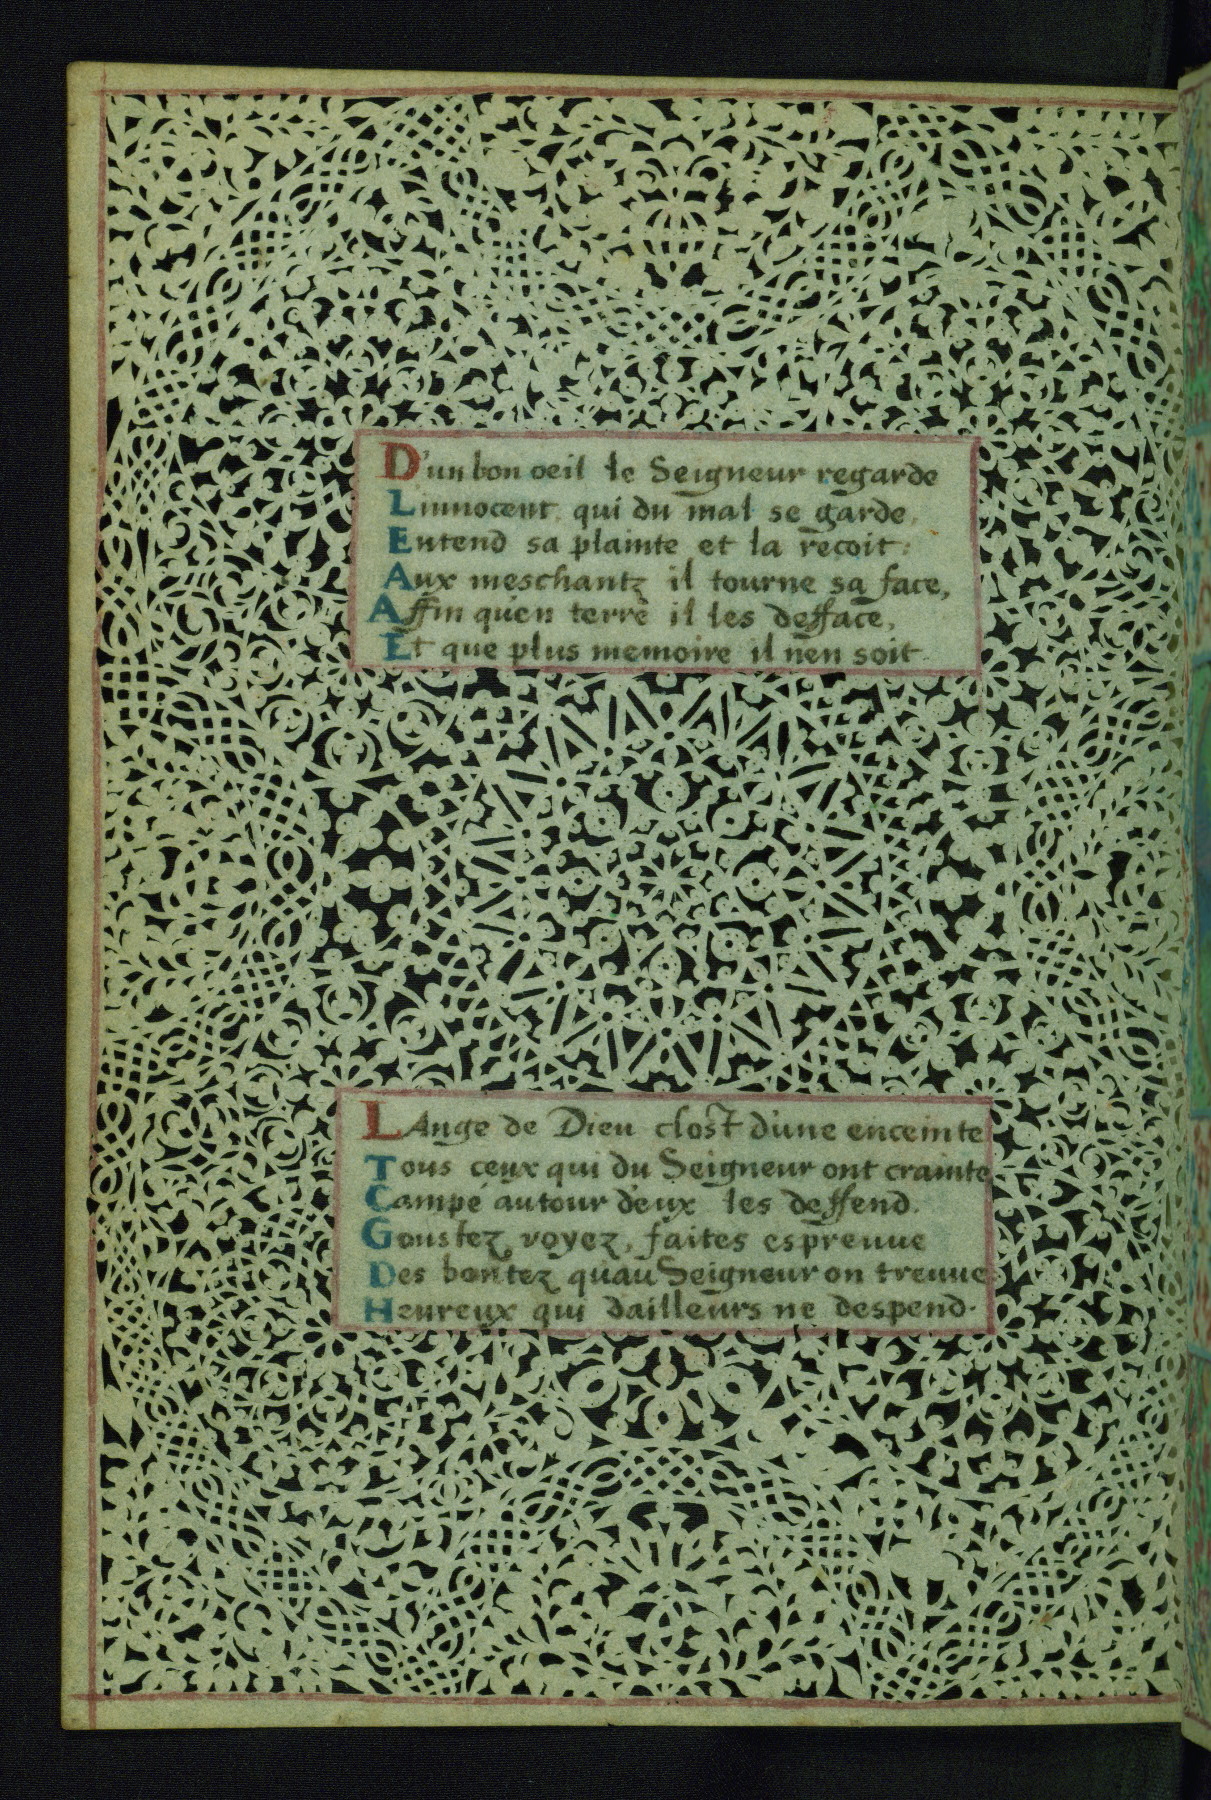 D'un bon oeil le Seigneur regarde
Linnocent qui du mal se garde,
Entend sa plainte et la recoit:
Aux meschantz il tourne sa face,
Affin qu'en terre il les defface,
Et que plus memoire il n'en soit.
LAnge de Dieu clost d'une enceinte
Tous ceux qui du Seigneur ont crainte
Campé autour d'eux les deffend.
Goustez, voyez, faites espreuue
Des bontez quau Seigneur on treuue
Heureux qui dailleurs ne despend.